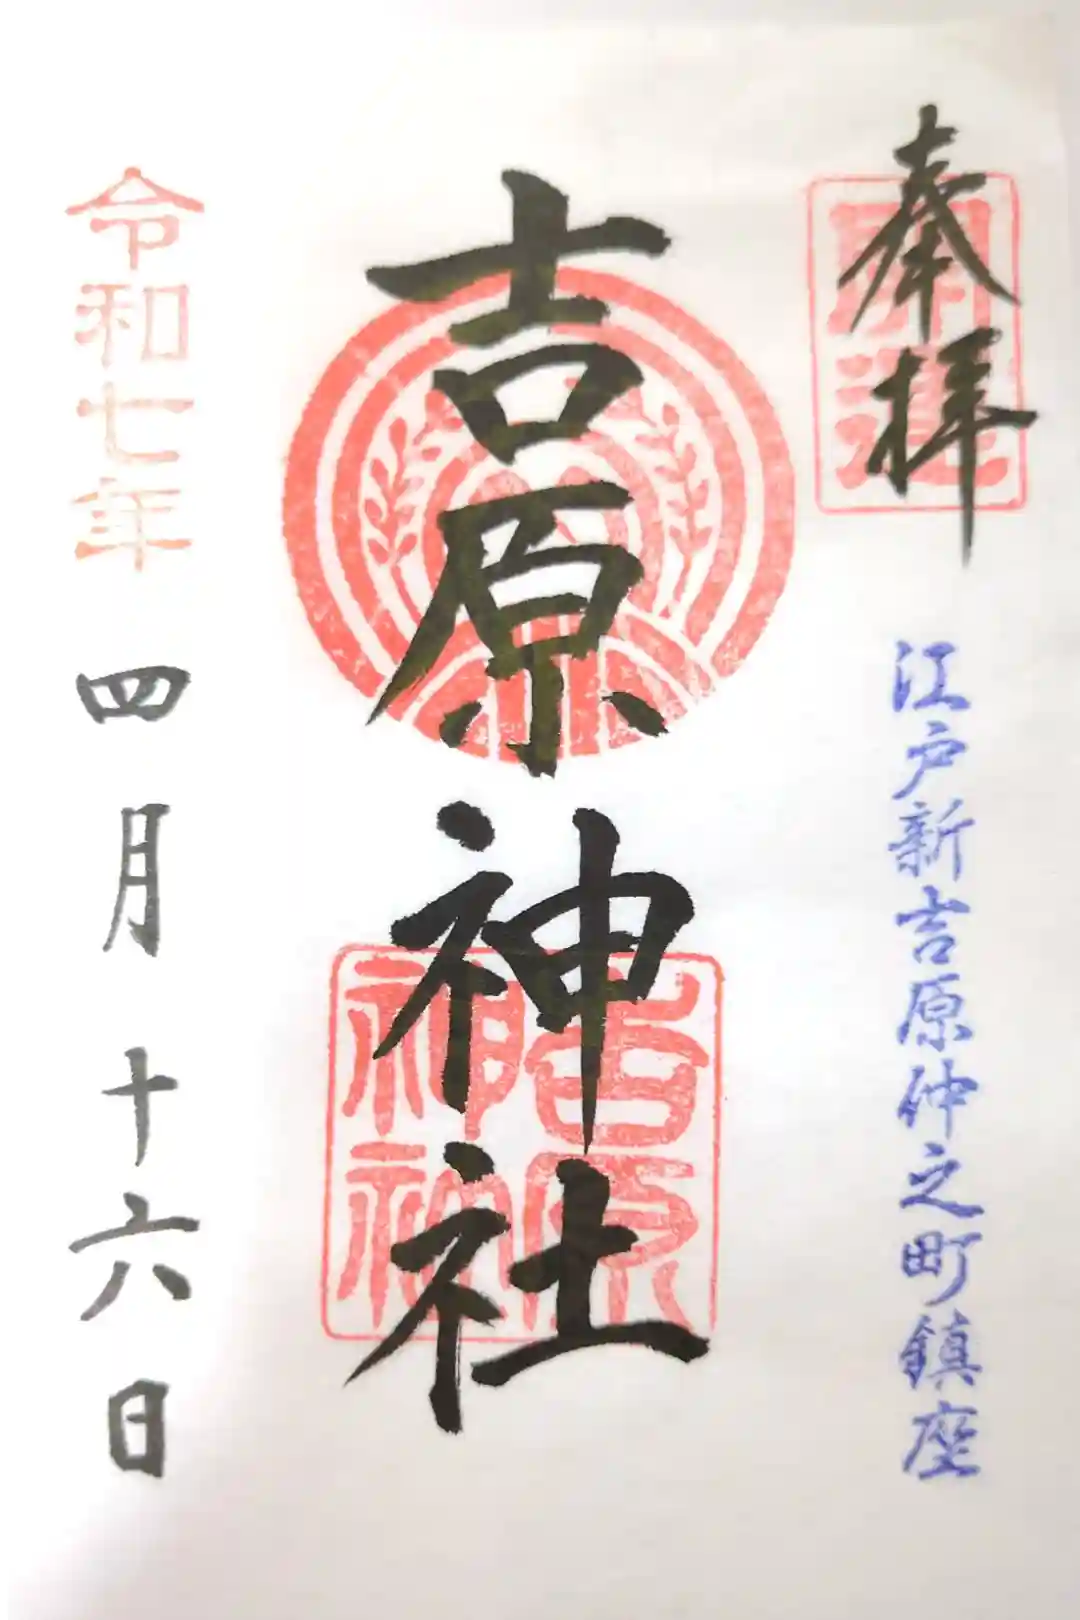 奉拝
開運
江戸新吉原仲之町鎮座
吉原神社
吉原
神社
令和七年 四月十六日